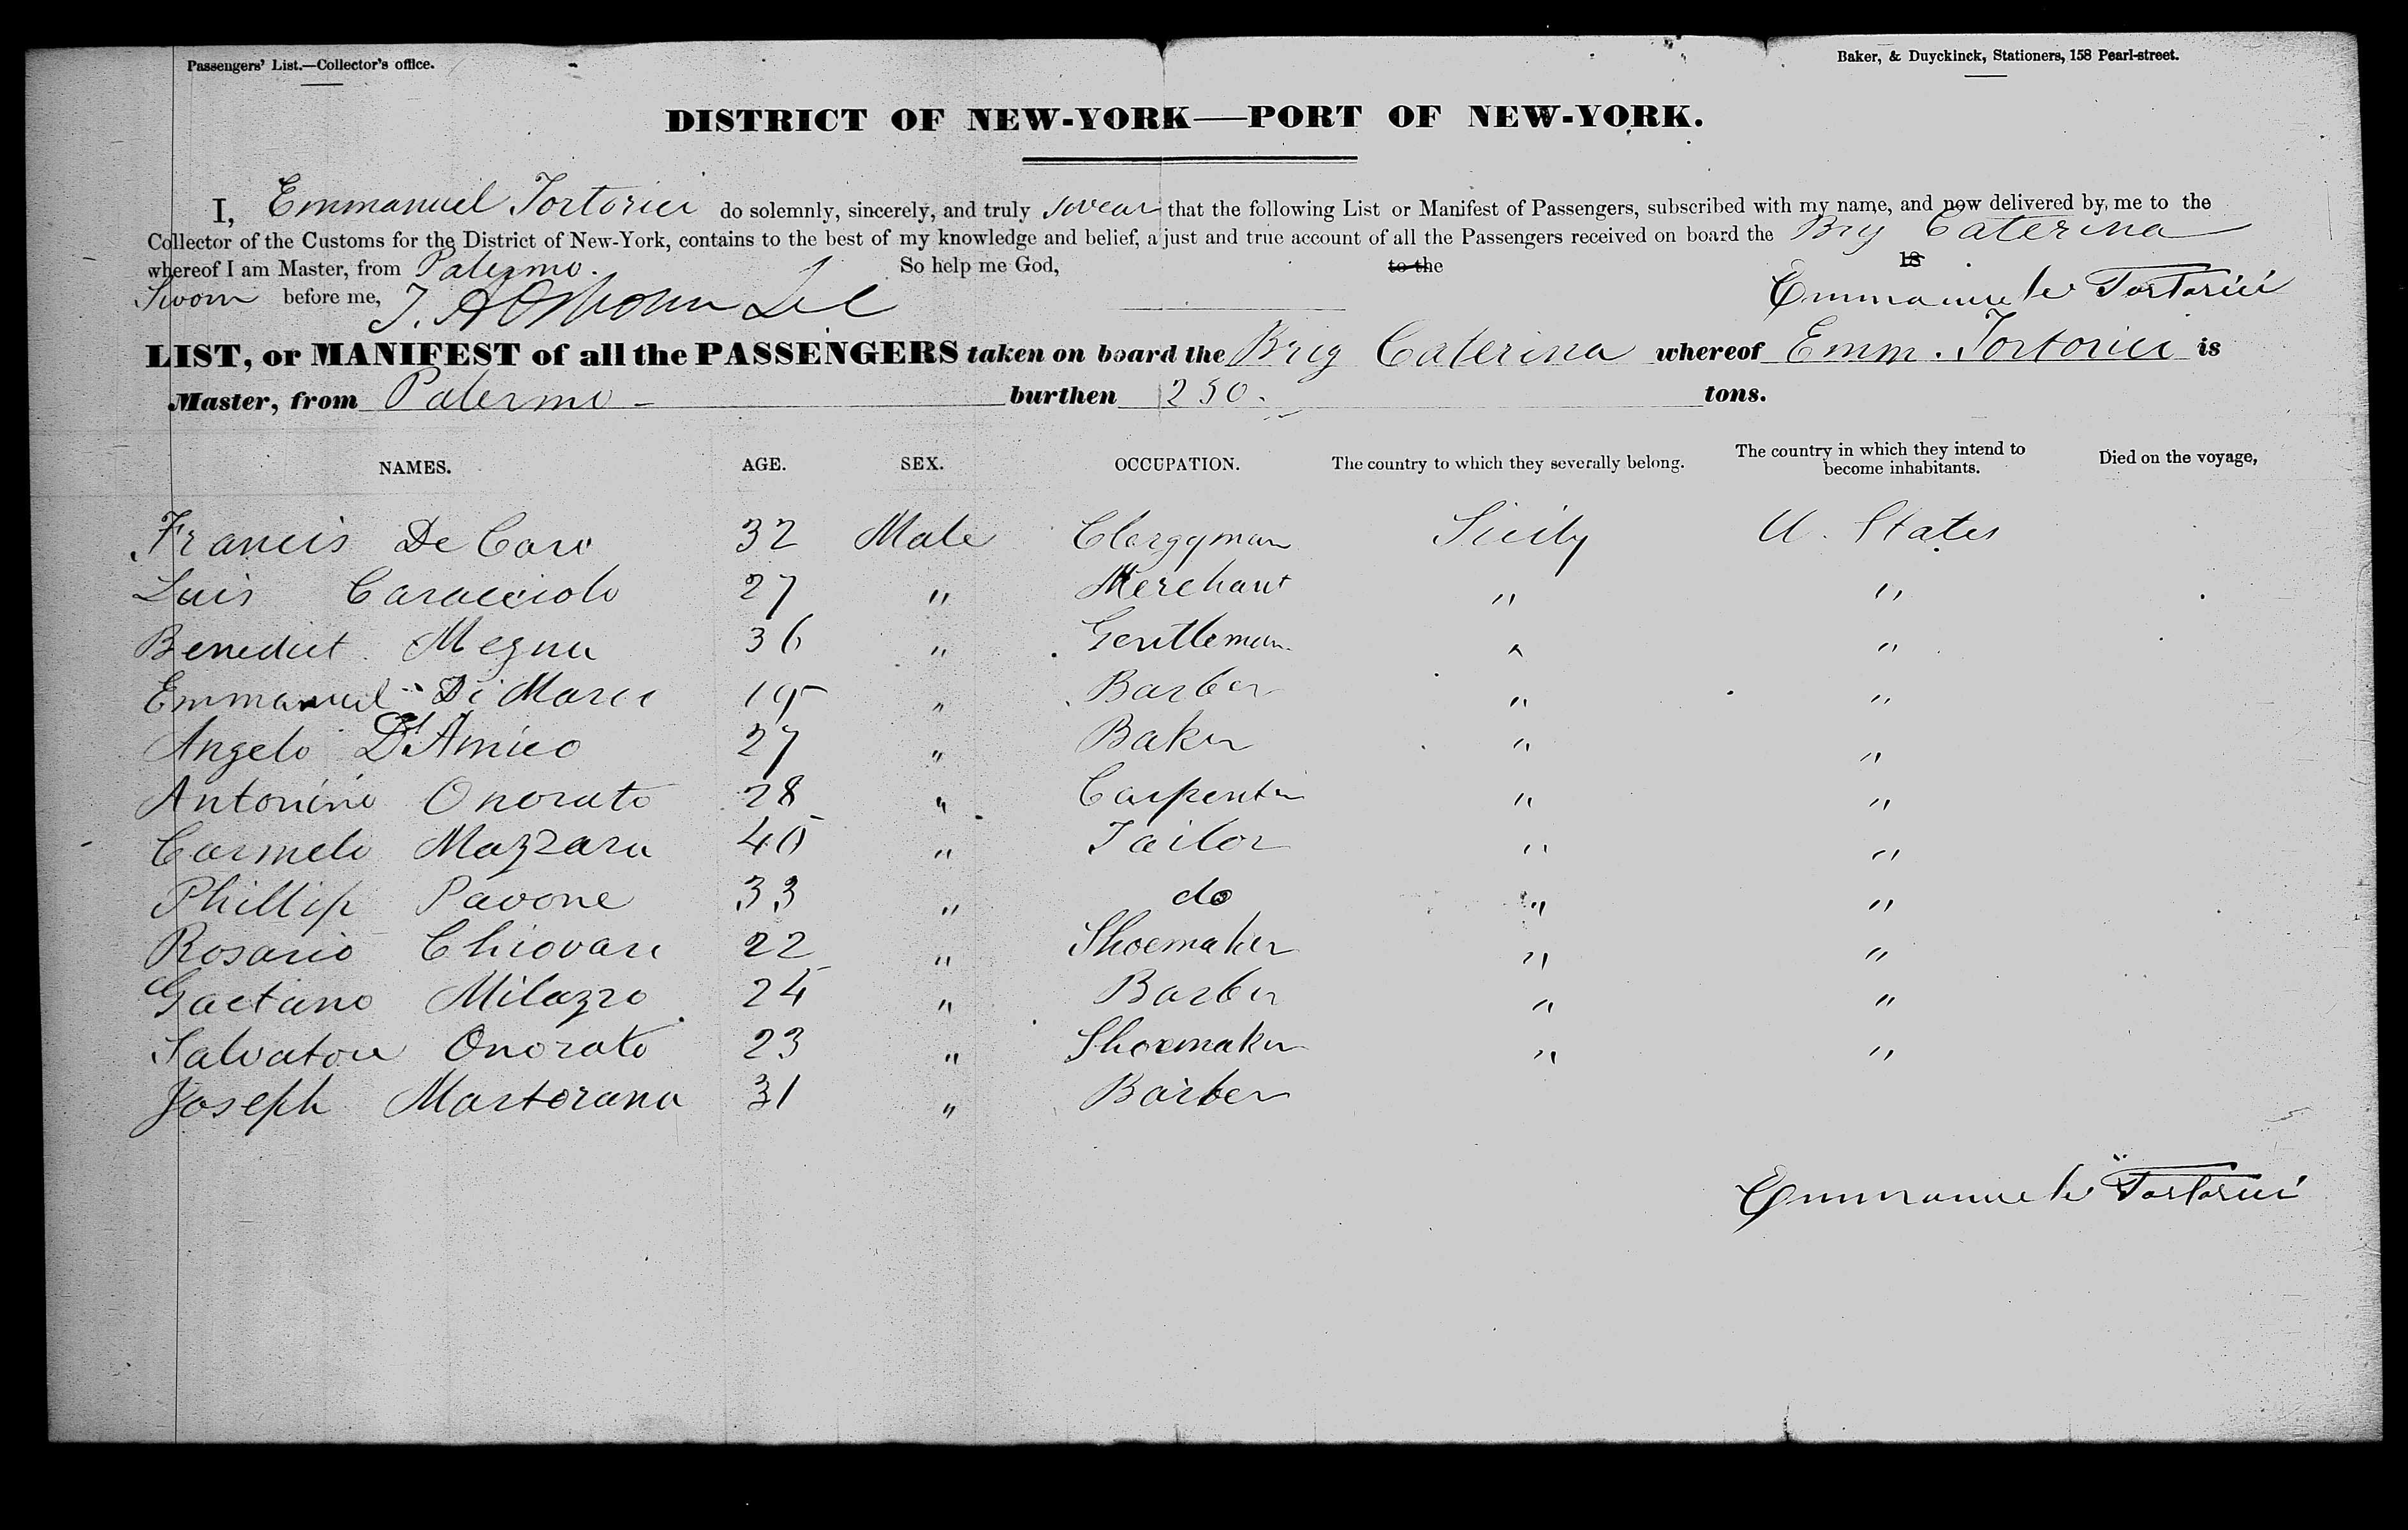 Passengers' List.—Collector's office.
Baker, & Duyckinck, Stationers, 158 Pearl-street.
DISTRICT OF NEW-YORK—PORT OF NEW-YORK.
I, Emmanuel Tortorici do solemnly, sincerely, and truly swear that the following List or Manifest of Passengers, subscribed with my name, and now delivered by me to the
Collector of the Customs for the District of New-York, contains to the best of my knowledge and belief, a just and true account of all the Passengers received on board the Brig Caterina
whereof I am Master, from Palermo. So help me God, to the 18
Sworn before me, Emmanuele Tortorici
LIST, or MANIFEST of all the PASSENGERS taken on board the Brig Caterina whereof Emm. Tortorici is
Master, from Palermo - burthen 250. tons.
NAMES. AGE. SEX. OCCUPATION. The country to which they severally belong. The country in which they intend to become inhabitants. Died on the voyage,
Francis De Caro 32 Male Clergyman Sicily U. States
Luis Caracciolo 27 " Merchant " "
Benedict Megna 36 " Gentleman " "
Emmanuel Di Marci " Barber " "
Angelo D'Amico 27 " Baker " "
Antonino Onorato 28 " Carpenter " "
Carmelo Mazzara 40 " Tailor " "
Phillip Pavone 33 " do " "
Rosario Chiovari 22 " Shoemaker " "
Gaetano Milazzo 25 " Barber " "
Salvatore Onorato 23 " Shoemaker " "
Joseph Martorana 31 " Barber
Emmanuele Tortorici